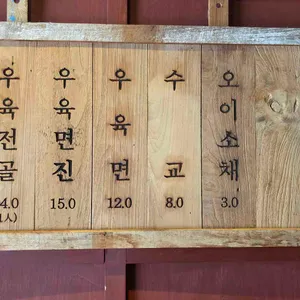 우육전골
4.0
우육면진
15.0
우육면
12.0
수교
8.0
오이소채
3.0